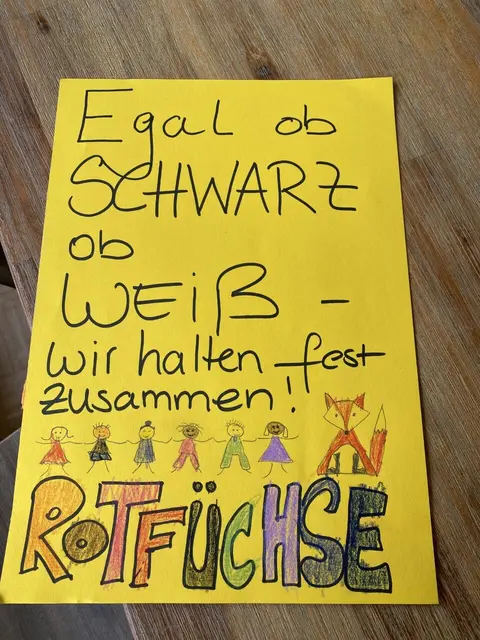 Egal ob
SCHWARZ
ob
WEiß –
wir halten fest
zusammen!
RoTFÜCHSE